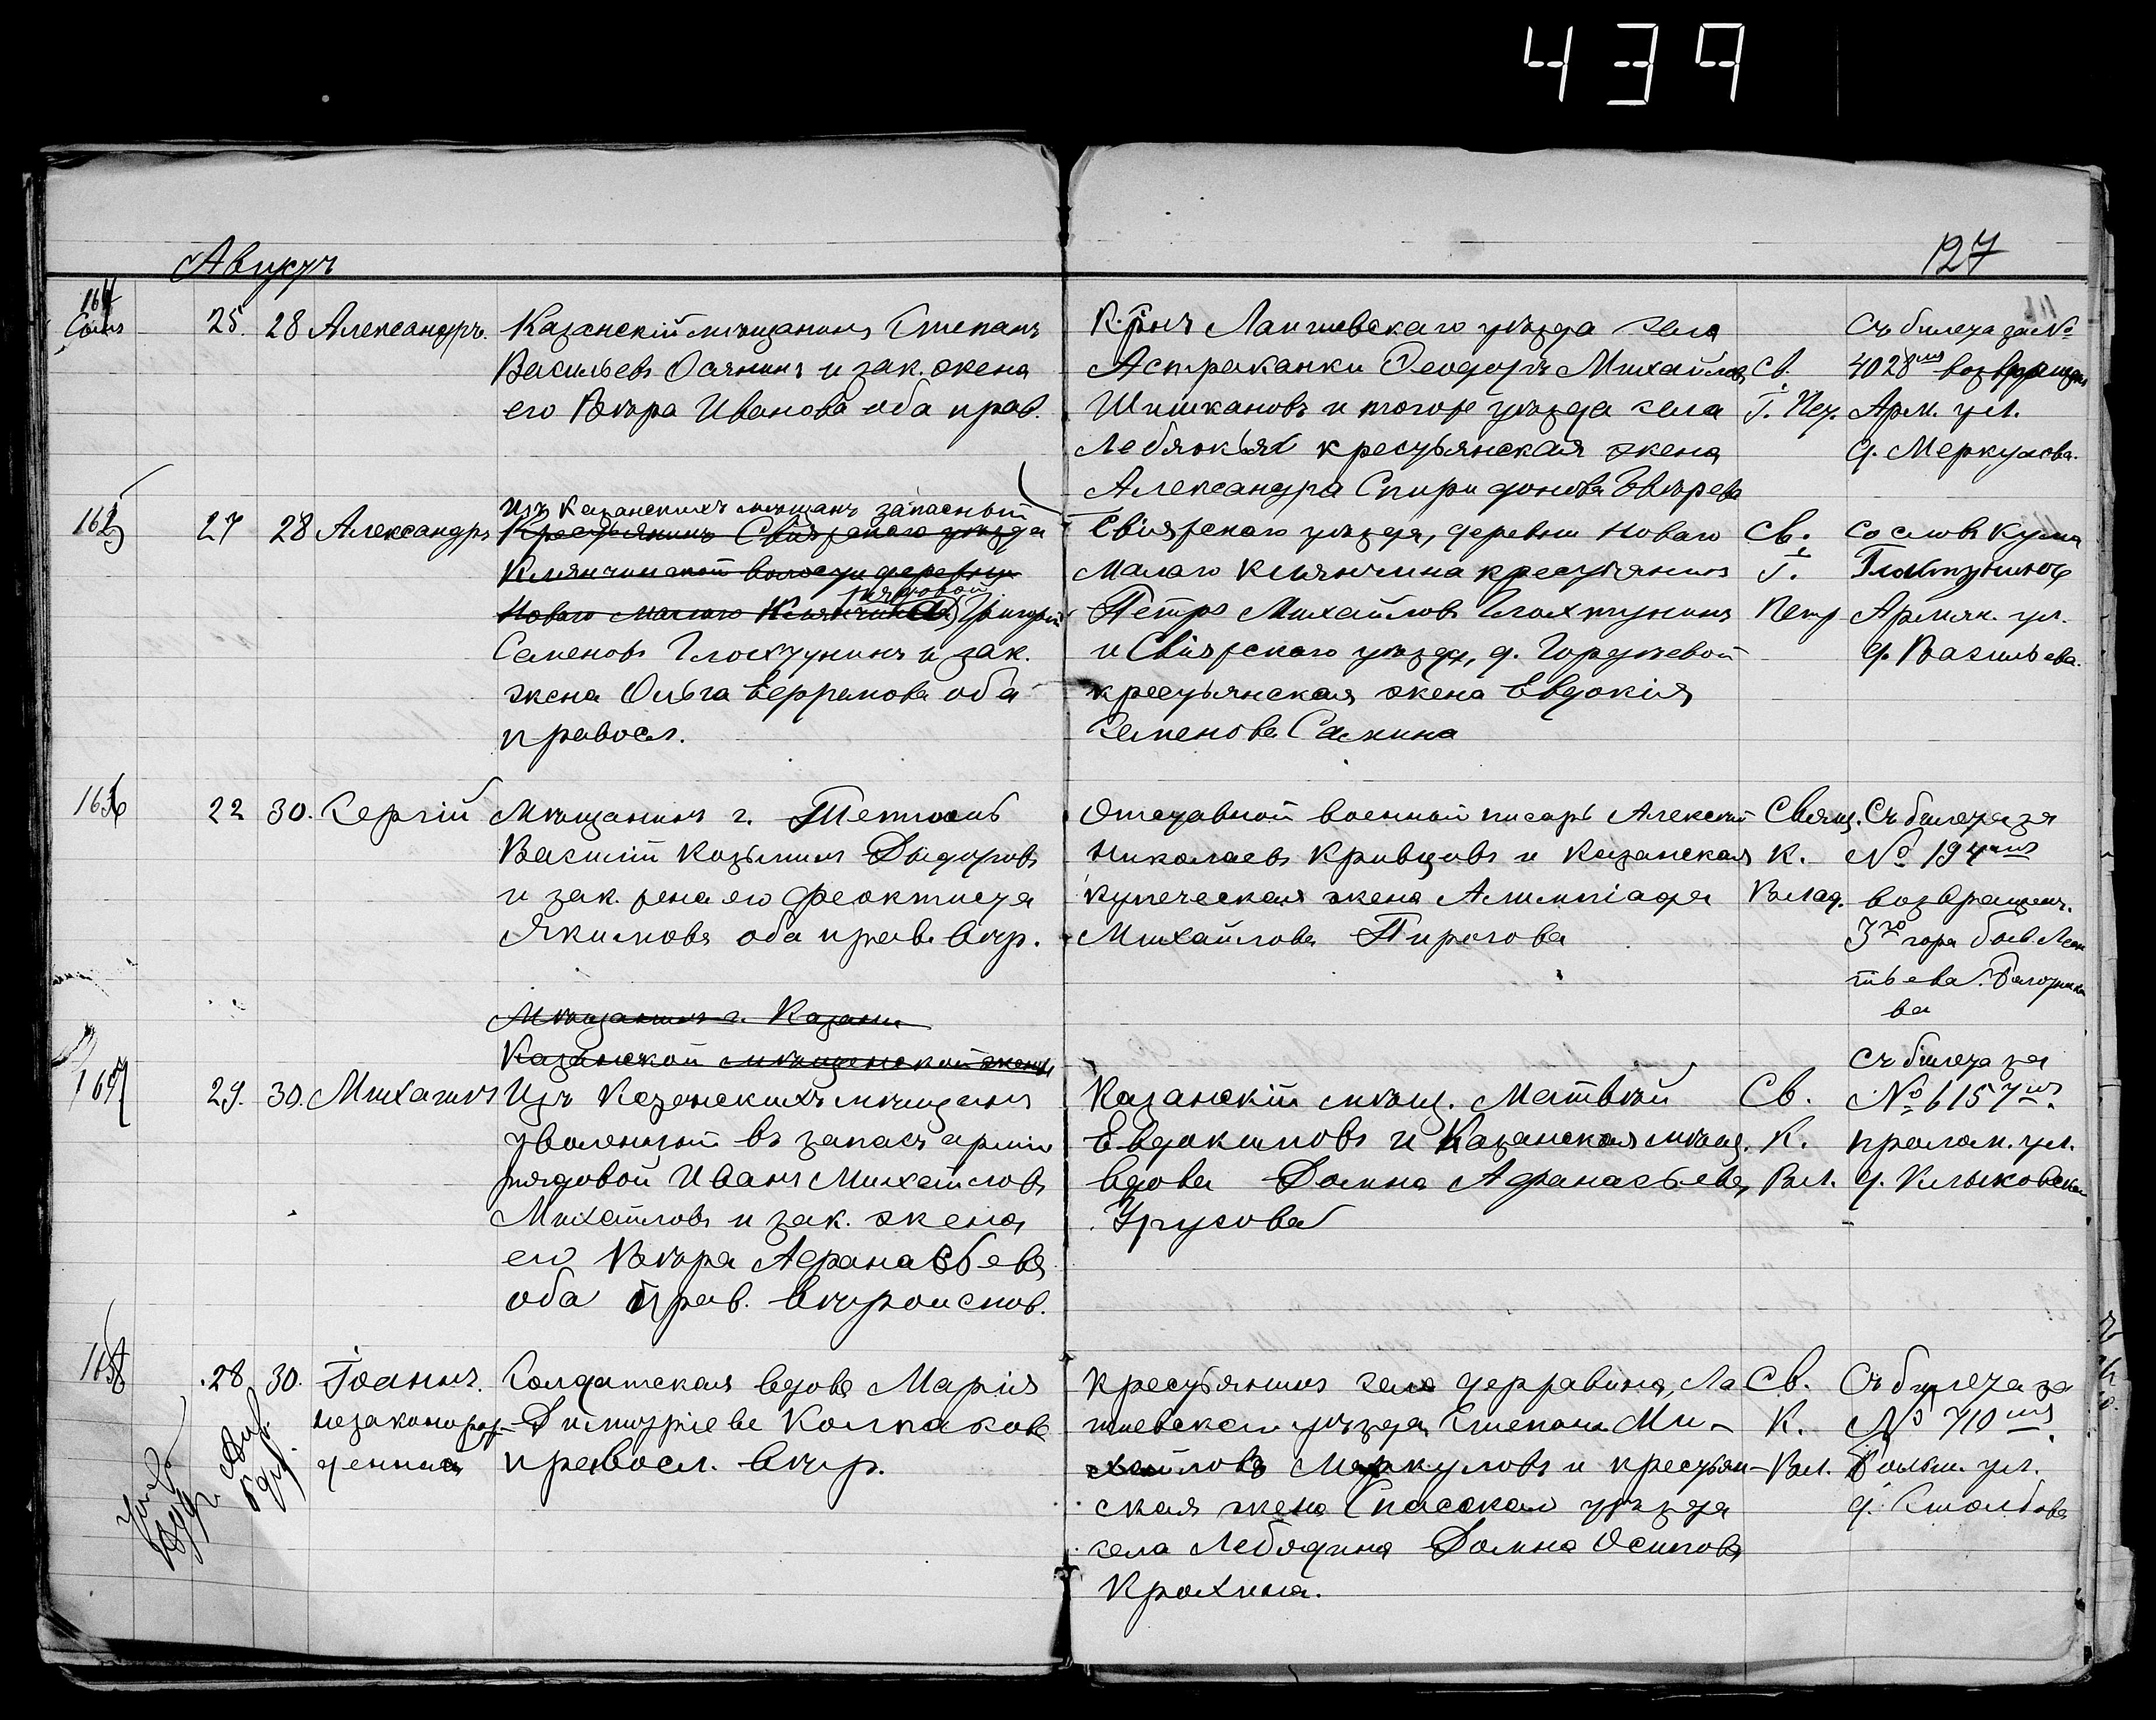 439
Август
127
164
25. 28 Александръ. Казанскій мѣщанинъ Степанъ
Васильевъ Осянинъ и зак. жена
его Вѣра Иванова оба прав.
Кр-нъ Лаишевскаго уѣзда села
Астраханки Ѳеодоръ Михайловъ
Шишкановъ и тогоже уѣзда села
Лебяжья крестьянская жена
Александра Спиридонова
Св.
І. Пет.
Съ билета за №
4028мъ возвращен
Арм. ул.
д. Меркулова.
165
27 28 Александръ
Изъ Казанскихъ мѣщанъ запасный
Крестьянинъ Свіяжскаго уѣзда
Клянчинской волости деревни
рядовой
Новаго малаго Клянчина Григорій
Семеновъ Глохтунинъ и зак.
жена Ольга Ефремова оба
правосл.
Свіяжскаго уѣзда, деревни Новаго
Малаго Клянчина крестьянинъ
Петръ Михайловъ Глохтунинъ
и Свіяжскаго уѣзда, д. Гордѣевой
крестьянская жена Евдокія
Семенова Салкина
Св.
І.
Петр
Со словъ кума
Глохтунина
Армян. ул.
д. Васильева.
166
22 30. Сергій Мѣщанинъ г. Тетюшъ
Василій Козьминъ Дидоровъ
и зак. жена его Феоктиста
Якимова оба прав. вѣр.
Отставной военный писарь Алексѣй
Николаевъ Кривцовъ и Казанская
купеческая жена Алимпіада
Михайлова Пирогова
Свящ.
К.
Влад.
Съ билета за
№ 194мъ
возвращен.
3я гора
тьева.
ва
Мѣщанинъ г. Казани
Казанской мѣщанской жены
167
29. 30. Михаилъ Изъ Казанскихъ мѣщанъ
уволенный въ запасъ арміи
рядовой Иванъ Михайловъ
Михайловъ и зак. жена
его Вѣра Афанасьева
оба прав. вѣроиспов.
Казанскій мѣщ. Матвѣй
Евдокимовъ и Казанская мѣщ.
вдова Домна Афанасьева
Урусова
Св.
К.
Вл.
Съ билета за
№ 6157мъ.
пролом. ул.
д. Клыковской
168
28 30. Іоаннъ. Солдатская вдова Марія
незаконорож- Димитріева Колпакова
денный правосл. вѣр.
Крестьянинъ села Державина, Ла
ишевскаго уѣзда Степанъ Ми-
хайловъ Меркуловъ и крестьян-
ская жена Спасскаго уѣзда
села Лебядина Домна Осипова
Крохина.
Св.
К.
Вл.
Съ билета за
№ 710мъ.
Больш. ул.
д. Столбова